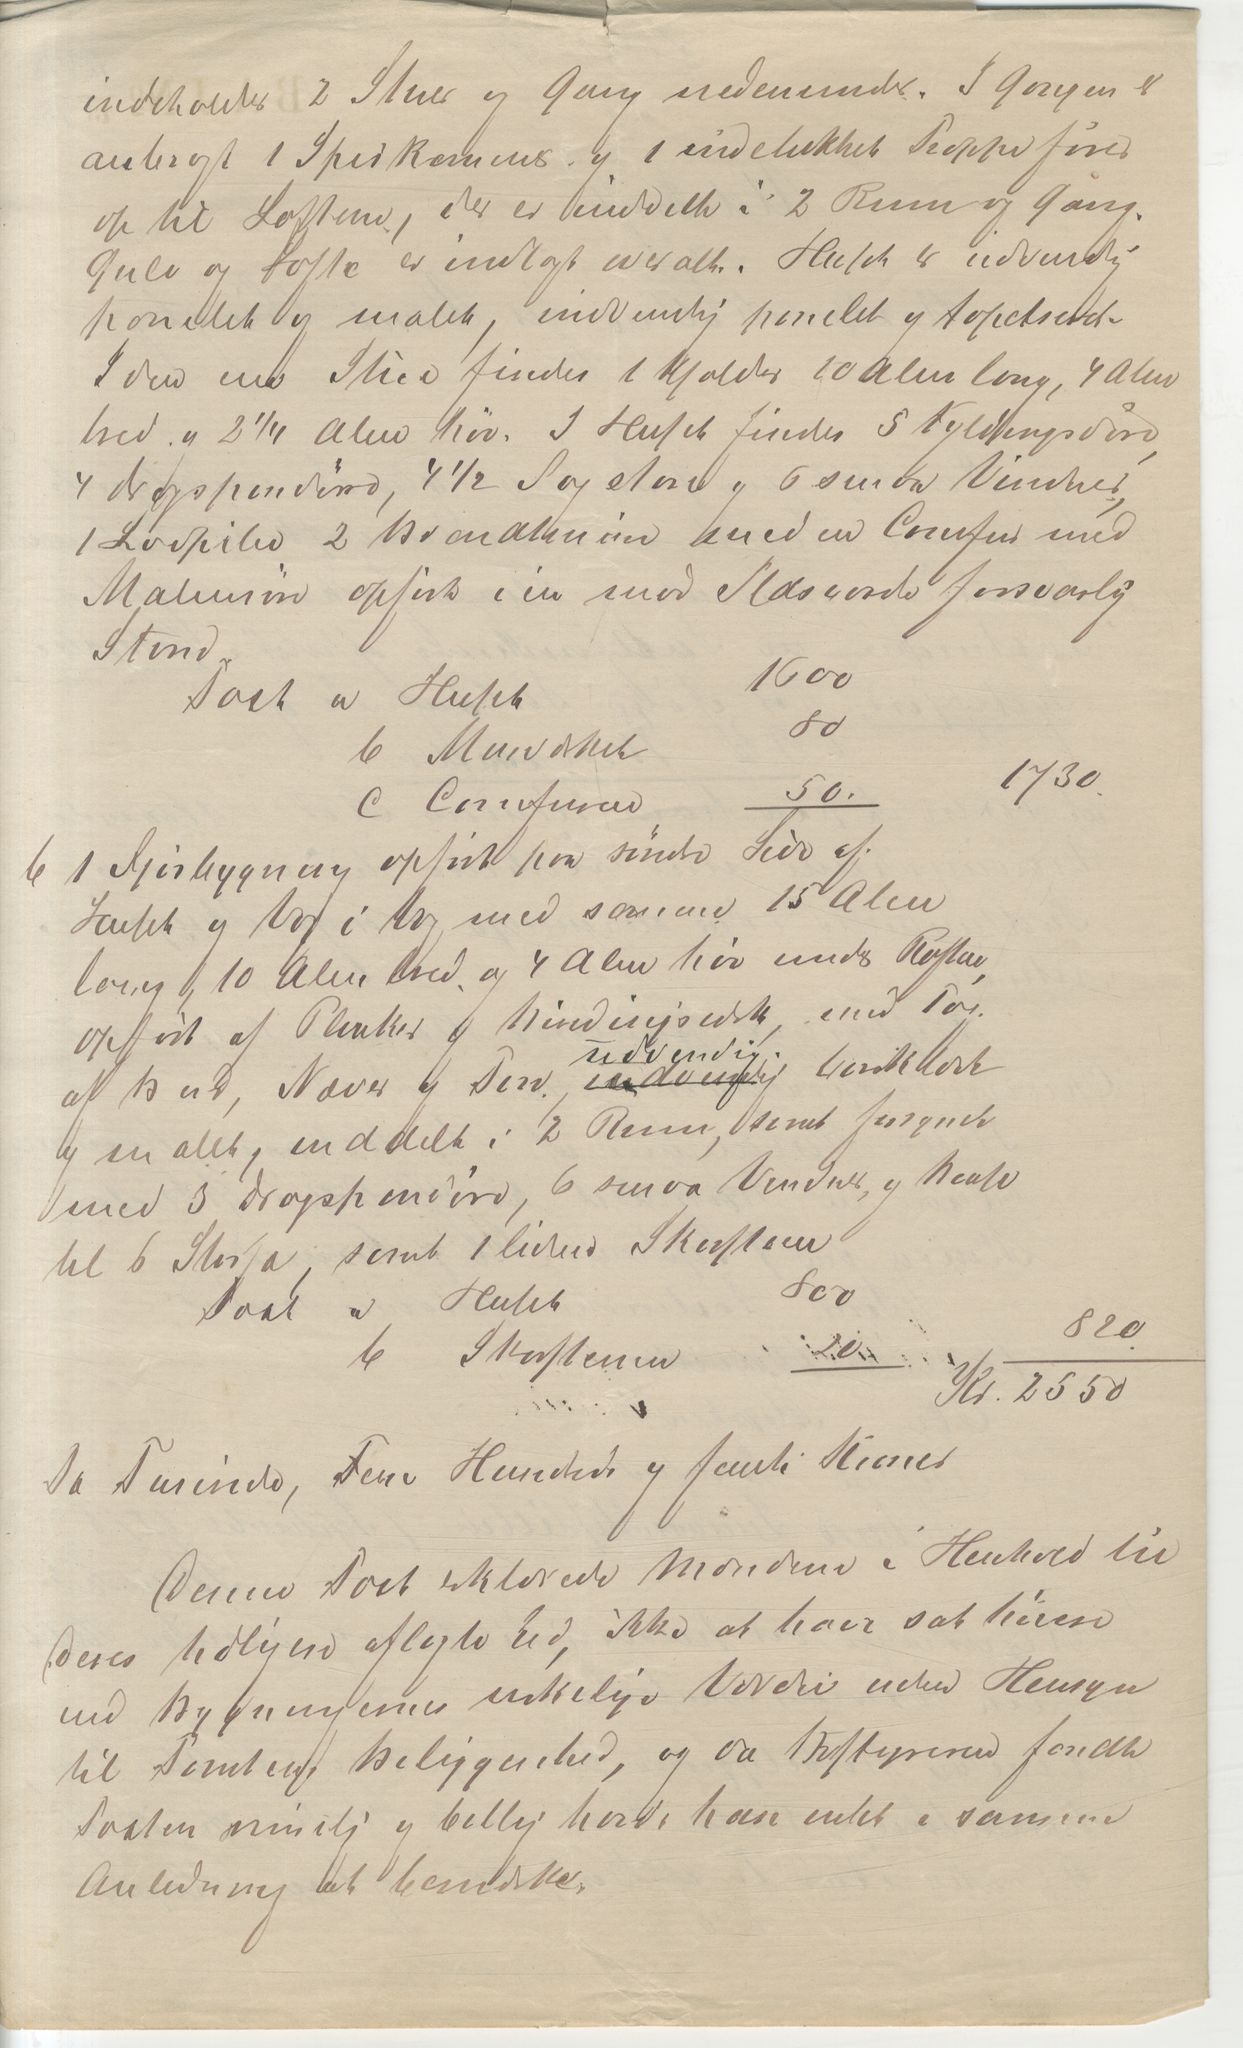 indeholder 2 Stuer og Gang nedenunder. I Gangen er
anbragt 1 Spiskammer og 1 indelukket Trappe fører
op til Loftene, der er inddelt i 2 Rum og Gang.
Gulv og Lofte er indlagt overalt. Huset er udvendig
panelet og malet, indvendig panelet og tapetseret.
I den ene Stue findes 1 Kjelder 10 Alen lang, 4 Alen
bred og 2 1/4 Alen høi. I Huset findes 5 Fyldingsdøre,
4 dragspendøre, 4 1/2 Fag store og 6 smaa Vinduer,
1 Lodpibe 2 Brandmure med en Comfur med
Malmrør opført i en mod Ildsvaade forsvarlig
Stand.
Taxt a Huset 1600
b Murværket 80
c Comfuren 50. 1730.
b 1 Fjøsbygning opført paa søndre Side af
Huset og Væg i Væg med samme 15 Alen
lang, 10 Alen bred og 4 Alen høi under Raftene,
opført af Planker og Bindingsværk, med Tag
af Bord, Næver og Torv, udvendig indvendig bordklædt
og malet, inddelt i 2 Rum, samt forsynet
med 3 dragspendøre, 6 smaa Vinduer, og Baase
til 6 Storfæ, samt 1 liden Skorsten
Taxt a Huset 800
b Skorstenen 20 820.
Kr. 2550
To Tusinde, Fem Hundrede og femti Kroner
Denne Taxt erklærede Mændene i Henhold til
deres tidligere aflagte Ed, ikke at have sat høiere
end Bygningernes virkelige Værdi uden Hensyn
til Tomtens Beliggenhed, og da Bestyreren fandt
Taxten rimelig og billig havde han intet i samme
Anledning at bemærke.